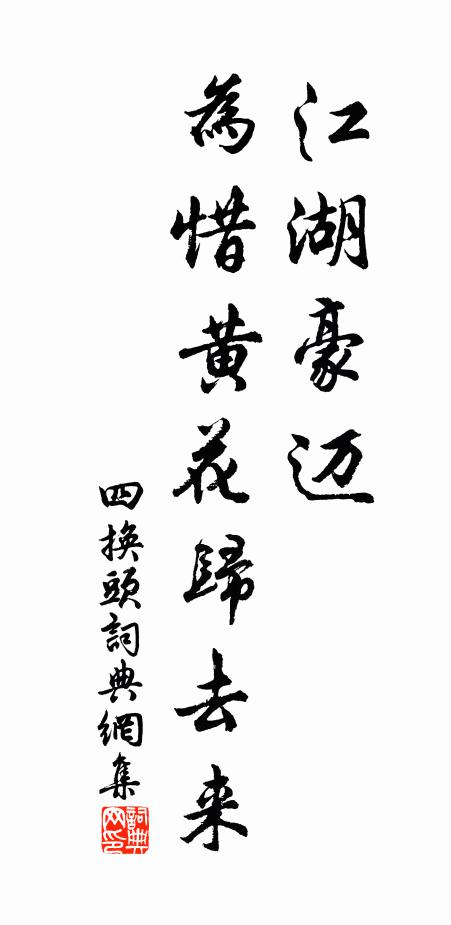 江湖豪迈
為惜黄花歸去来
四换頭詞典網集
詞典网印